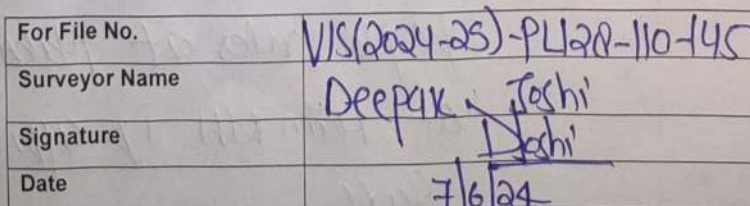 For File No. VIS(2024-25)-PL128-110-145
Surveyor Name Deepak Joshi
Signature DJoshi
Date 7/6/24